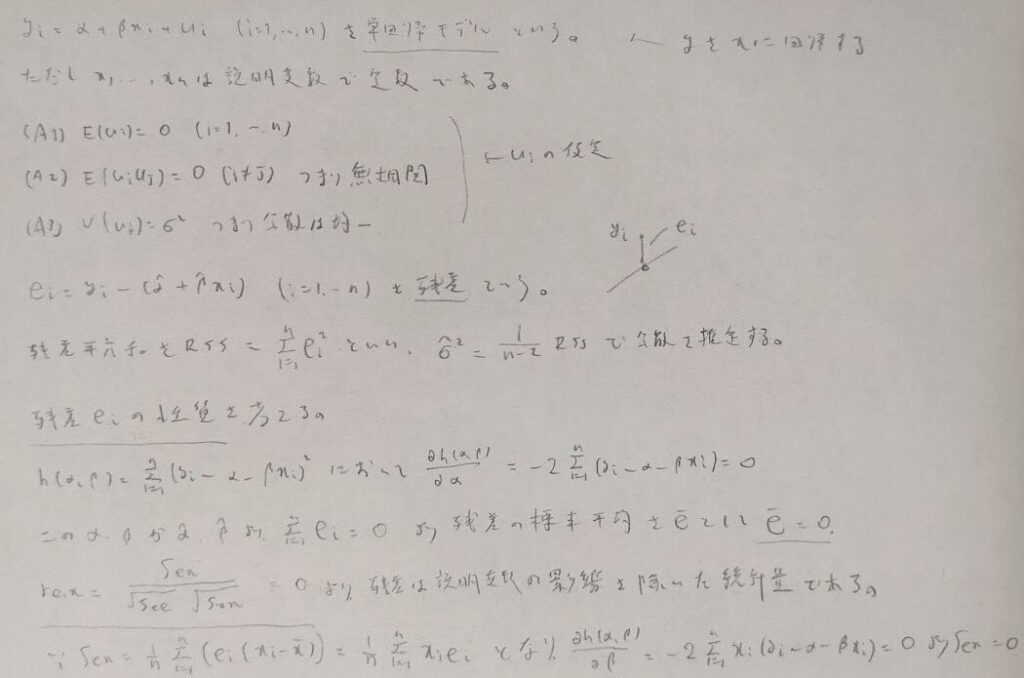 yi = α + βxi + ui (i=1,…,n) を単回帰モデルという。 ← yをxに回帰する
ただし x1,…,xnは説明変数で定数である。
(A1) E(ui) = 0 (i=1,…,n)
(A2) E(uiuj) = 0 (i≠j) つまり無相関
← uiの仮定
(A3) V(ui) = σ² つまり分散は均一
yi ei
ei = yi − (α̂ + β̂xi) (i=1,…n) を残差という。
残差平方和をRSS = Σ_{i=1}^{n} ei² といい、 σ̂² = 1/(n−2) RSS で分散を推定する。
残差eiの性質を考える。
h(α,β) = Σ_{i=1}^{n} (yi − α − βxi)² において ∂h(α,β)/∂α = −2 Σ_{i=1}^{n} (yi − α − βxi) = 0
このα,βがα̂,β̂より、Σ_{i=1}^{n} ei = 0 より 残差の標本平均をēといい ē = 0.
re,x = Sex/(√See √Sxx) = 0 より残差は説明変数の影響を除いた統計量である。
∵ Sex = 1/n Σ_{i=1}^{n} (ei(xi − x̄)) = 1/n Σ_{i=1}^{n} xiei となり ∂h(α,β)/∂β = −2 Σ_{i=1}^{n} xi(yi − α − βxi) = 0 より Sex = 0